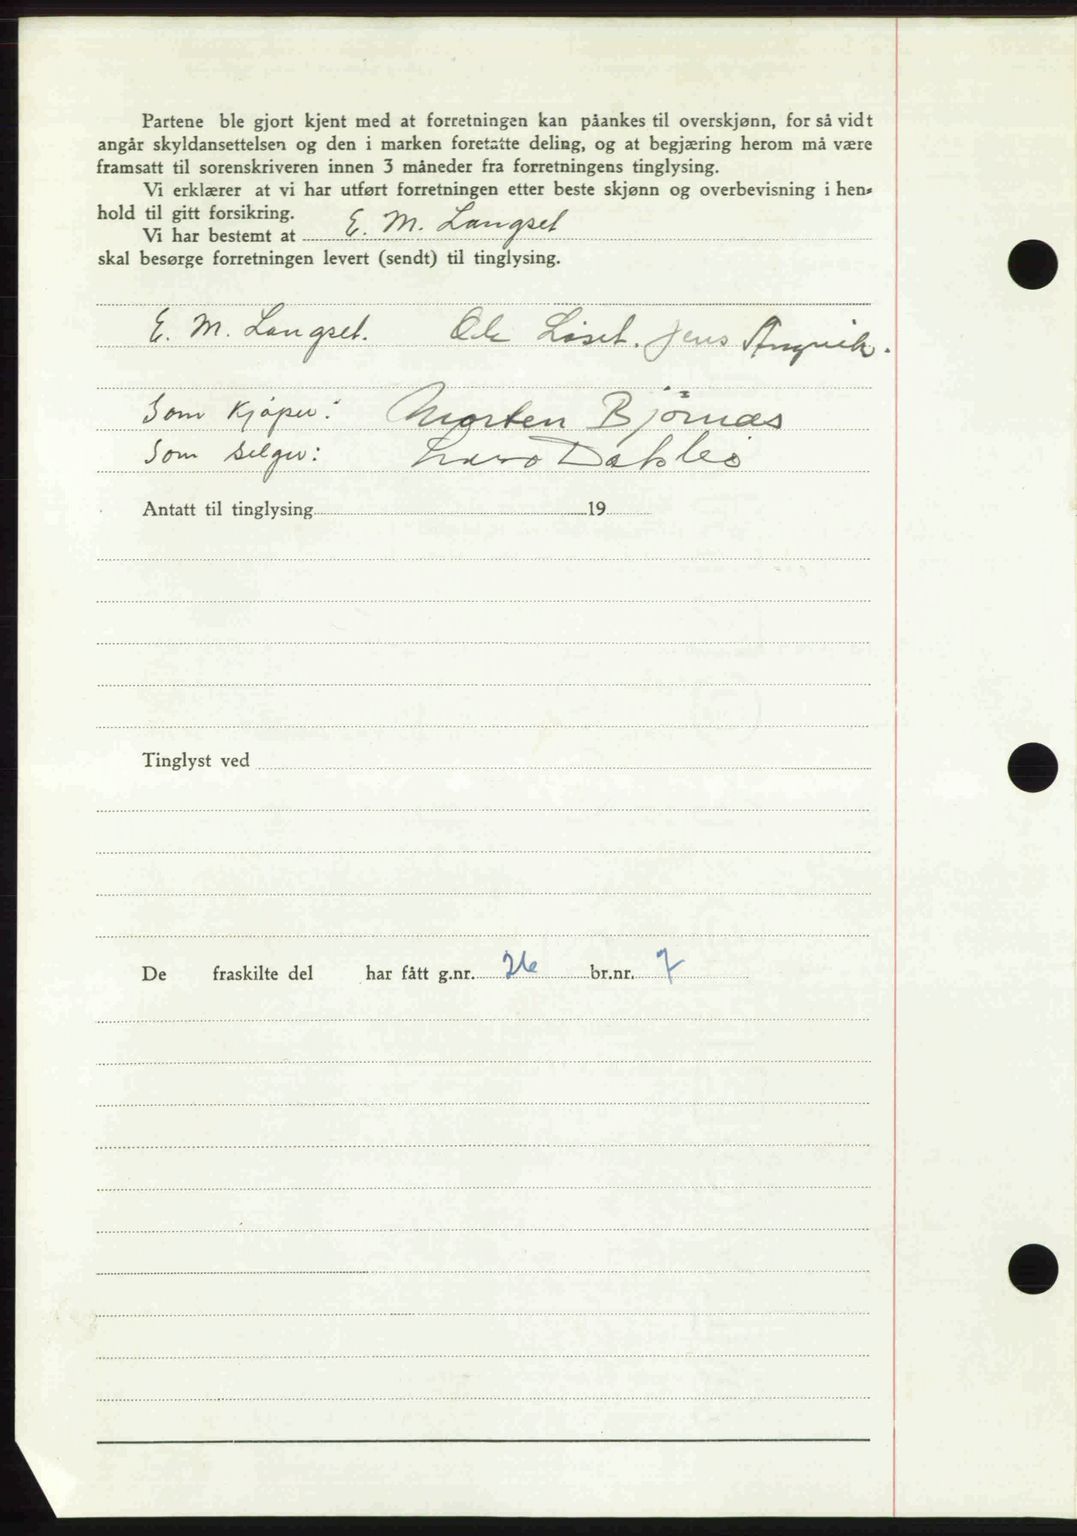 Partene ble gjort kjent med at forretningen kan påankes til overskjønn, for så vidt
angår skyldansettelsen og den i marken foretatte deling, og at begjæring herom må være
framsatt til sorenskriveren innen 3 måneder fra forretningens tinglysing.
Vi erklærer at vi har utført forretningen etter beste skjønn og overbevisning i hen-
hold til gitt forsikring.
Vi har bestemt at E. M. Langset
skal besørge forretningen levert (sendt) til tinglysing.
E. M. Langset. Ole Løset. Jens Angvik.
Som kjøper: Morten Bjørnås
Som selger:
Antatt til tinglysing 19
Tinglyst ved
De fraskilte del har fått g.nr. 26 br.nr. 7